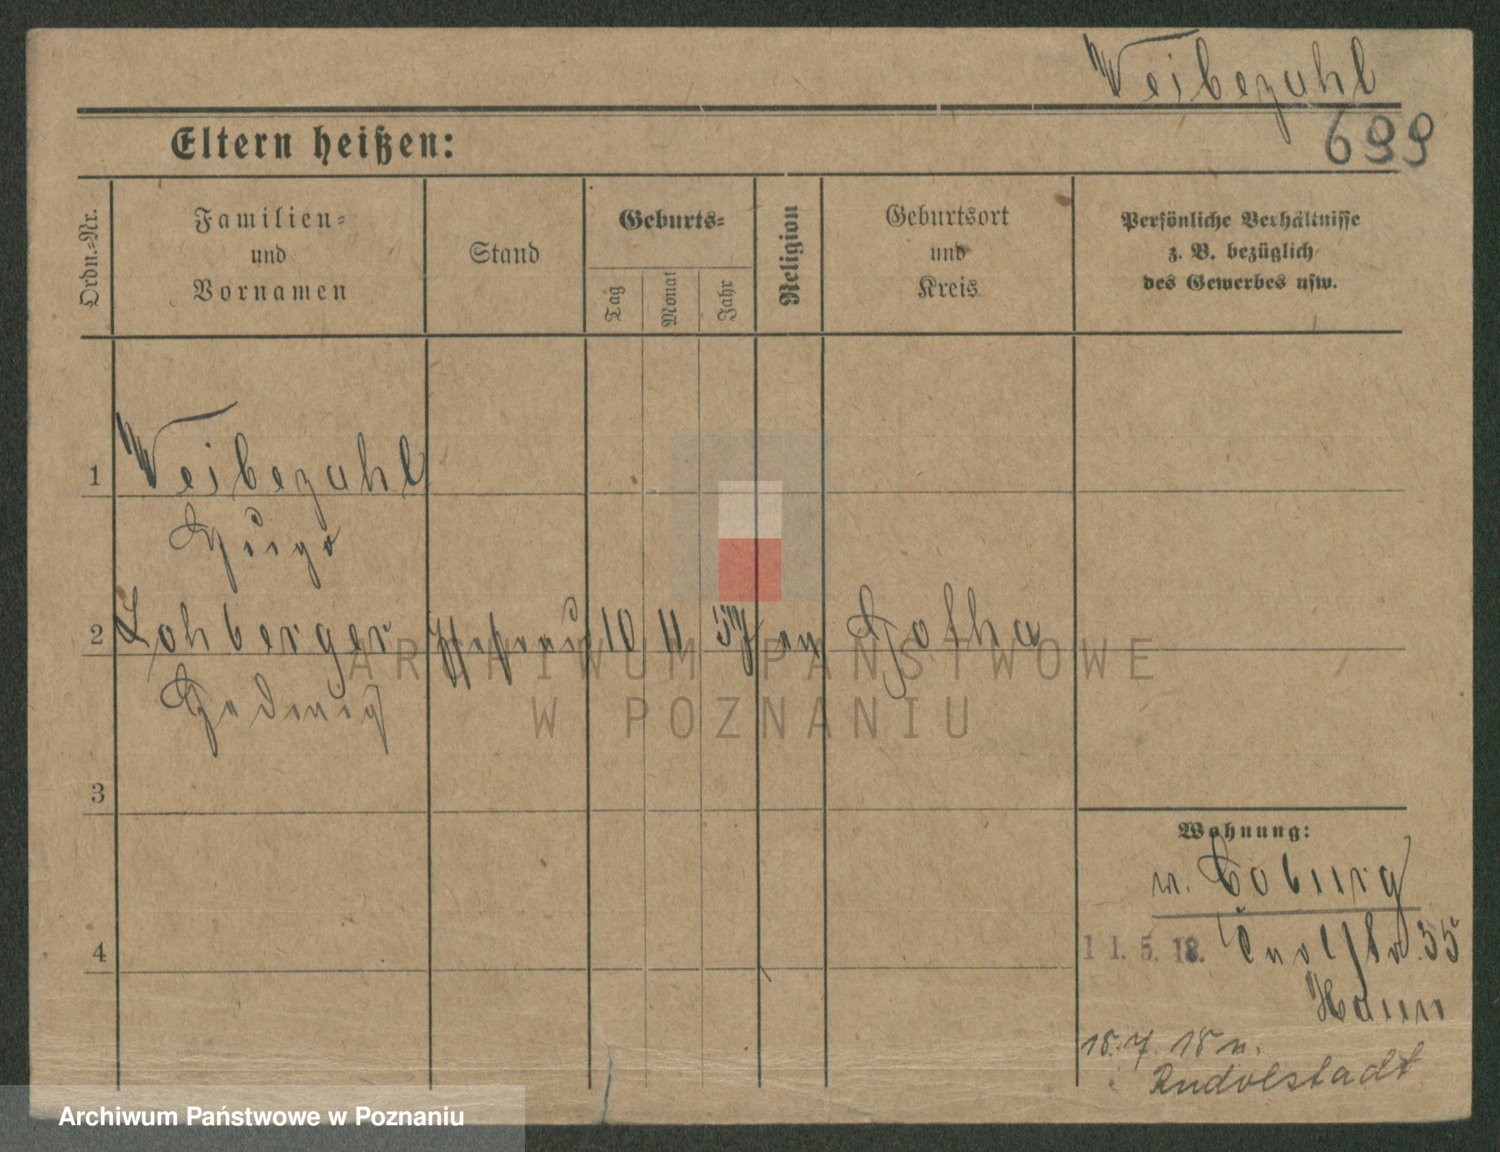 Weibezahl
699
Eltern heißen:
Ordn.-Nr.
Familien-
und
Vornamen
Stand
Geburts-
Tag
Monat
Jahr
Religion
Geburtsort
und
Kreis
Persönliche Verhältnisse
z. B. bezüglich
des Gewerbes usw.
1
Weibezahl
Hugo
2
Lohberger
10
11
57
ev
Gotha
Hedwig
ARCHIWUM PAŃSTWOWE
W POZNANIU
3
Wohnung:
n. Coburg
4
11. 5. 18.
35
18. 7. 18 n.
Rudolstadt
Archiwum Państwowe w Poznaniu